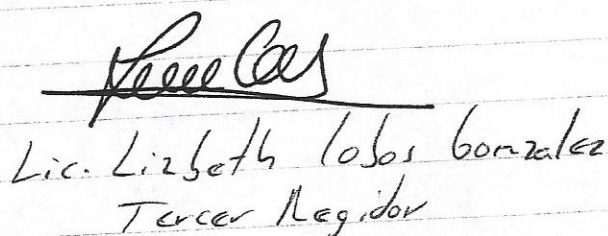 Lic. Lizbeth Cobos Gonzalez
Tercer Regidor